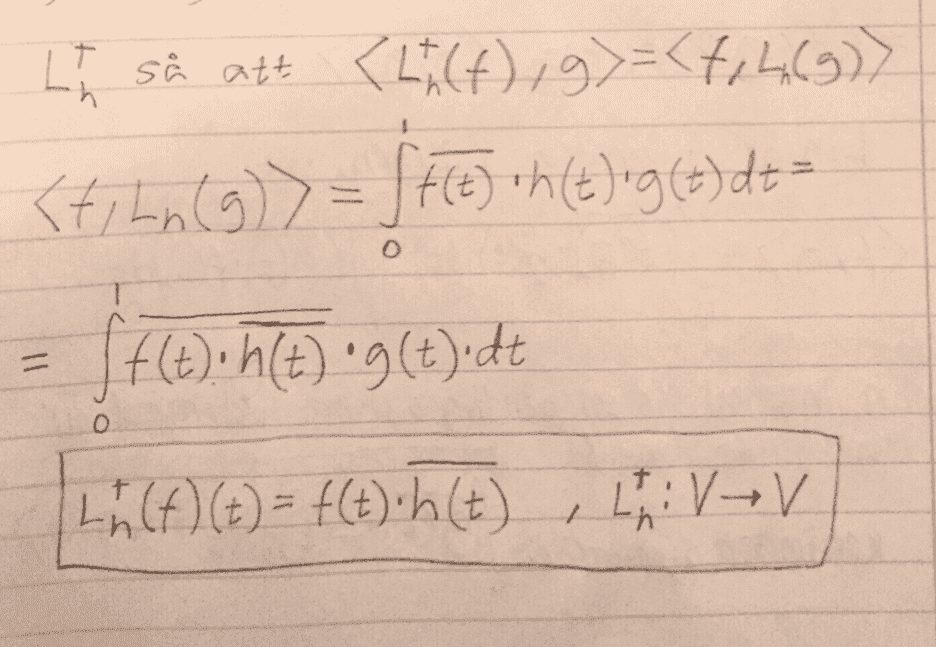 L_h^† så att ⟨L_h^†(f), g⟩ = ⟨f, L_h(g)⟩
⟨f, L_h(g)⟩ = ∫_0^1 \overline{f(t)} · h(t) · g(t) dt =
= ∫_0^1 \overline{f(t) · \overline{h(t)}} · g(t) · dt
L_h^†(f)(t) = f(t) · \overline{h(t)} , L_h^† : V → V